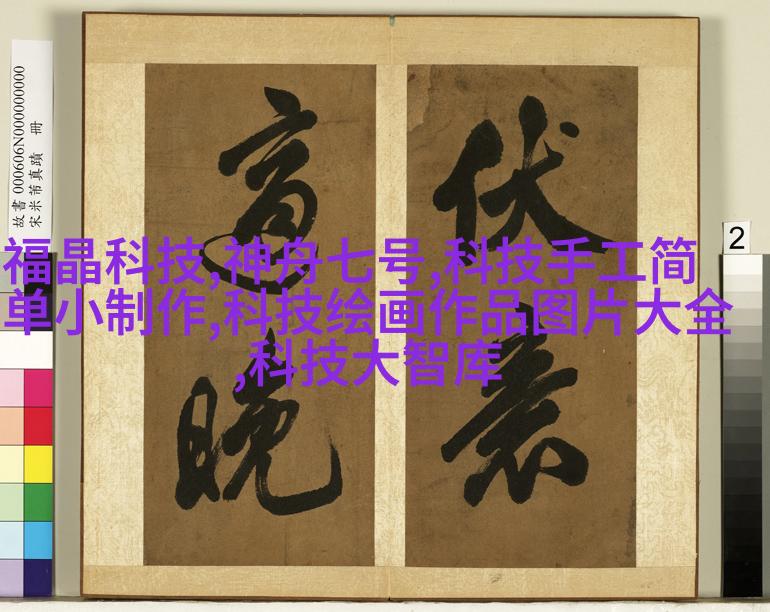 福晶科技,神舟七号,科技手工简
单小制作,科技绘画作品图片大全
,科技大智库
伏
晚
故書 000606N000000000
宋米芾真蹟 冊
2